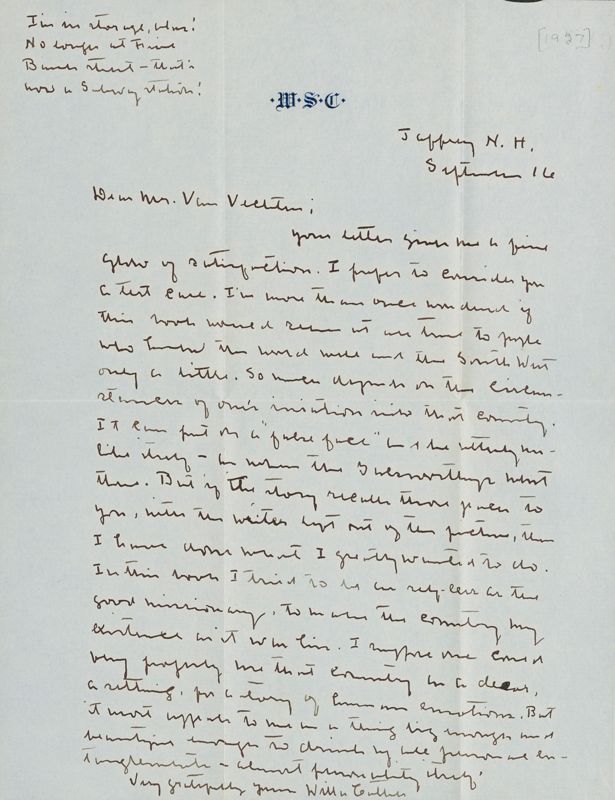 I'm in storage, alas!
No longer at Five
Bank street - that's
now a Subway station!
[1927]
W·S·C·
Jaffrey N. H.
September 16
Dear Mr. Van Vechten;
Your letter gives me a fine
glow of satisfaction. I prefer to consider you
a test case. I'm more than once wondered if
this book would seem at all true to people
who knew the world well and the South West
only a little. So much depends on the circum-
stances of one's initiation into that country.
It can put on a "false face" and be utterly un-
like itself - as when the Galsworthys went
there. But if the story recalls those places to
you, with the writer kept out of the picture, then
I have done what I greatly wanted to do.
In this book I tried to be as self-less as the
good missionary, to make the country my
existence as it was his. I suppose one could
very properly use that country as a decor,
a setting, for a story of human emotions. But
it most appeals to me as a thing big enough and
beautiful enough to drink up all personal en-
tanglements - almost personality itself.
Very gratefully yours Willa Cather